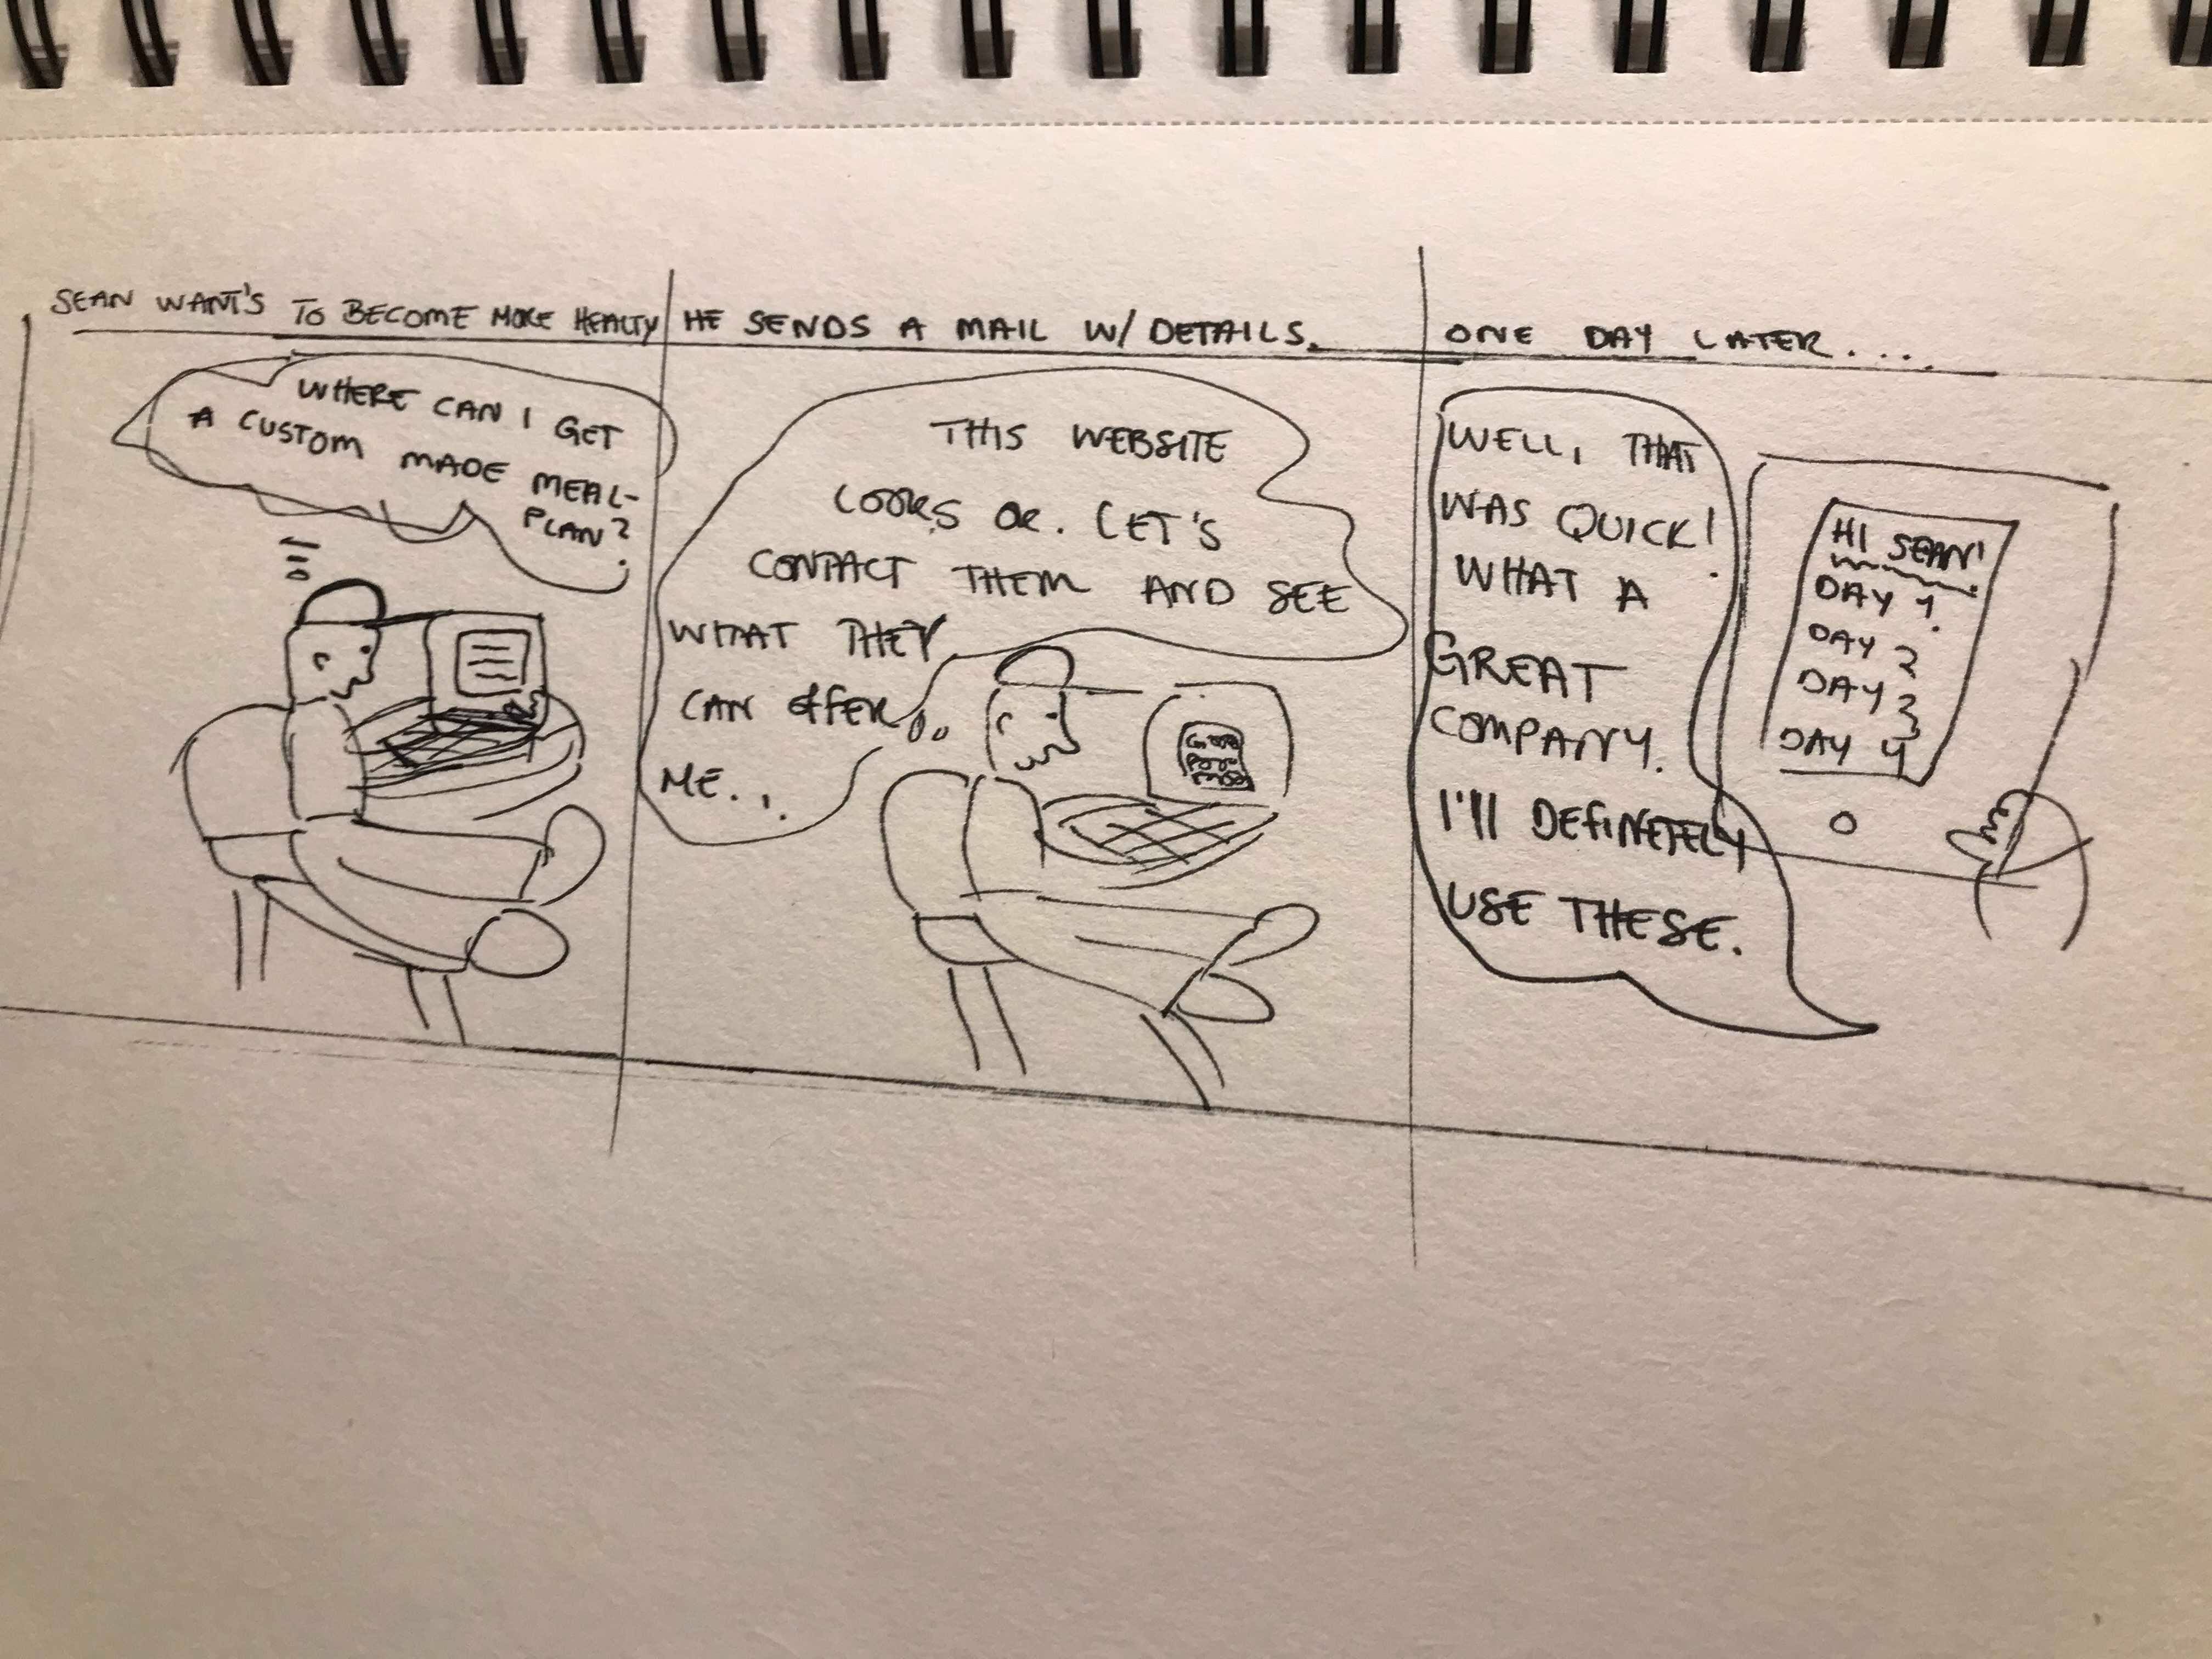 SEAN WANT'S TO BECOME MORE HEALTY
WHERE CAN I GET
A CUSTOM MADE MEAL-
PLAN?
HE SENDS A MAIL W/ DETAILS.
THIS WEBSITE
LOOKS OK. LET'S
CONTACT THEM AND SEE
WHAT THEY
CAN OFFER
ME..
ONE DAY LATER....
WELL, THAT
WAS QUICK!
WHAT A
GREAT
COMPANY.
I'll DEFINETELY
USE THESE.
HI SEAN!
DAY 1.
DAY 2
DAY 3
DAY 4